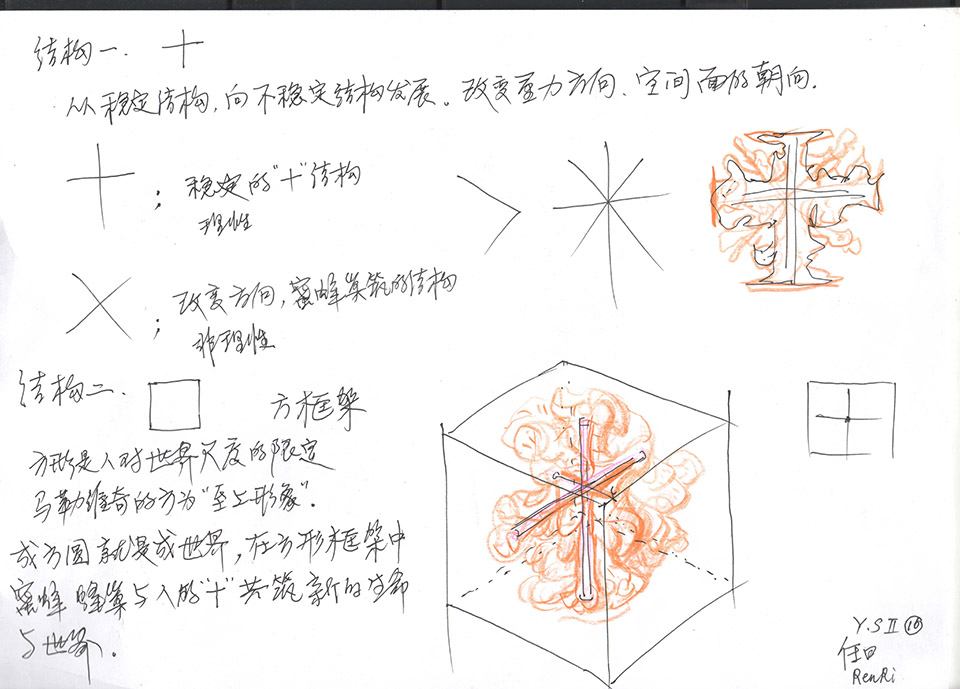 结构一. 十
从稳定结构,向不稳定结构发展。改变重力方向、空间面的朝向.
; 稳定的"十"结构
理性
; 改变方向,蜜蜂巢筑的结构
非理性
结构二.
方框架
方形是人对世界尺度的限定
马勒维奇的方为"至上形象".
成方圆就是成世界,在方形框架中
蜜蜂蜂巢与人的"十"共筑新的生命
与世界.
Y.SⅡ⑯
任日
RenRi